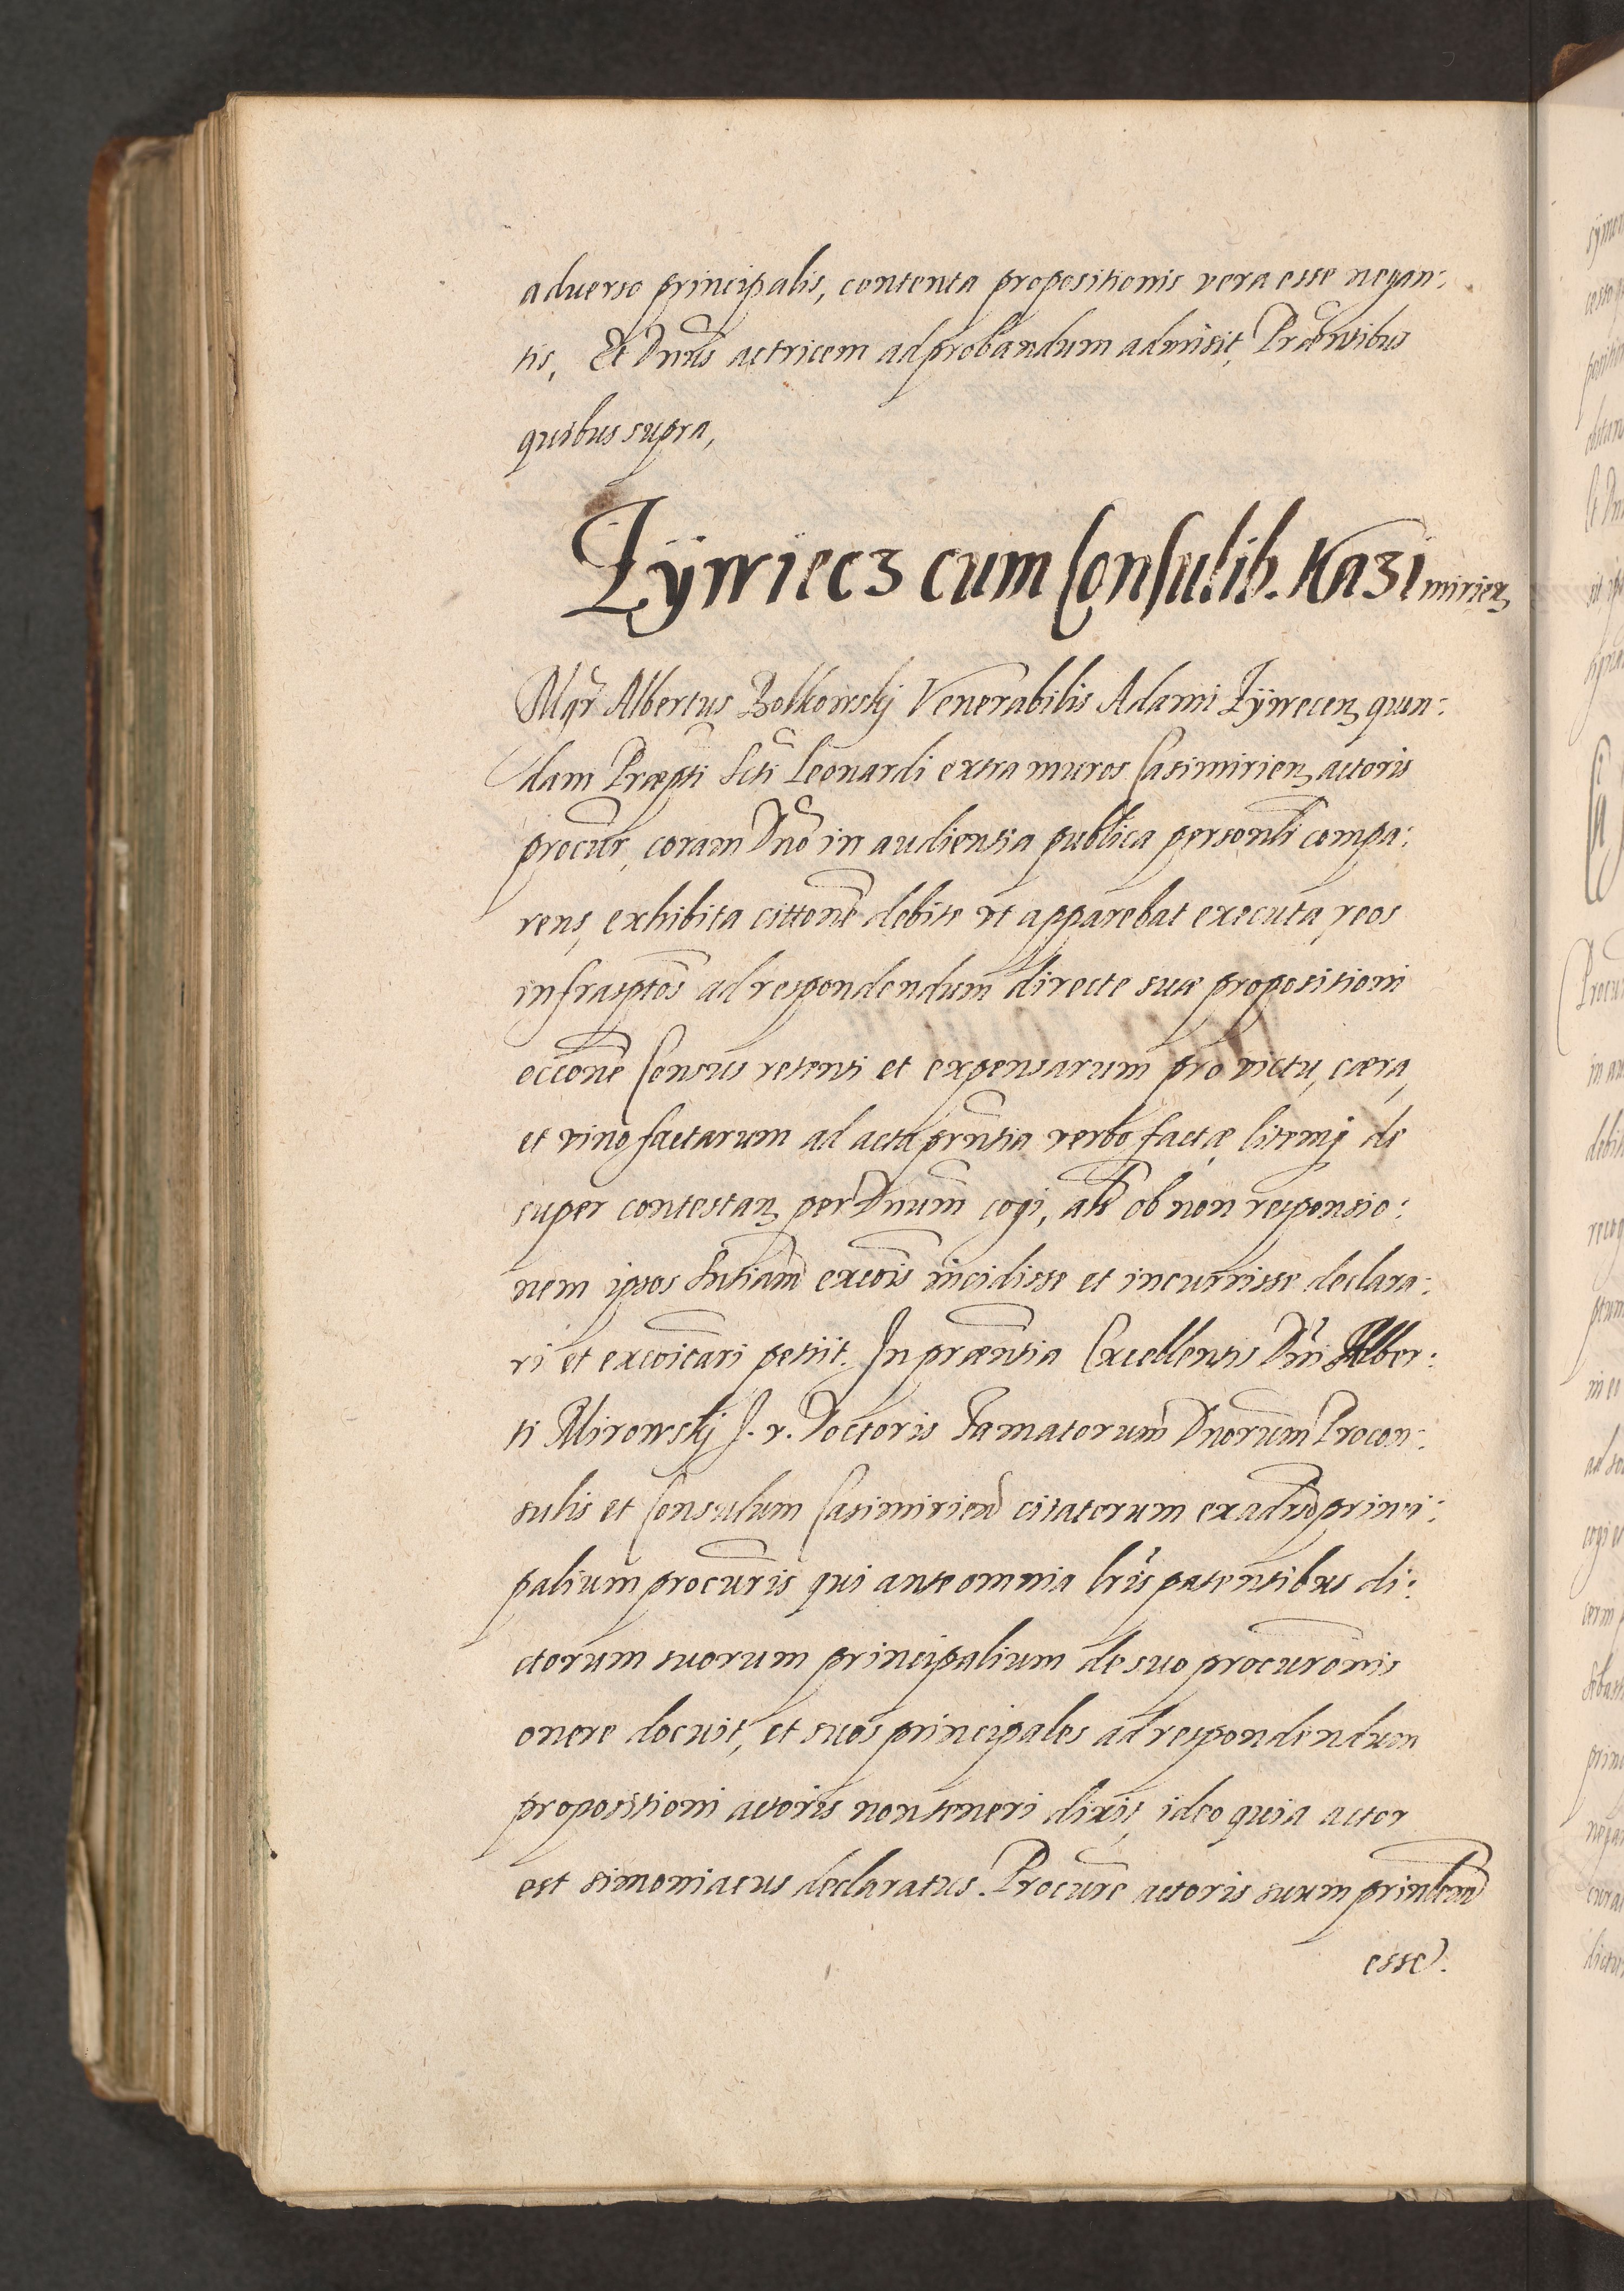 aduerso principalis, contenta propositionis vera esse negan:
tis, Et Dnus actricem ad probandum admisit, Præntibus
quibus supra,
Zÿwiecz cum Consulib. Kazimirien
Mgr Albertus Bolkowskj Venerabilis Adami Zÿwecen quon:
dam Præpti Scti Leonardi extra muros Casimirien actoris
procur, coram Dno in audientia publica personli compa:
rens, exhibita cittone debite vt apparebat executa, reos
infrasptos ad respondendum directe suæ propositioni
occone Census retenti et expensarum pro victu, cæra,
et vino factarum ad acta prntia verbo factæ, litemq de
super contestan per Dnum cogi, als ob non responsio:
nem ipsos Sntiam excois incidisse et incurrisse declara:
ri et excoicari petiit. In præntia Excellentis Dni Alber:
ti Mirowskj J. v. Doctoris Famatorum Dnorum Procon:
sulis et Consulum Casimirien citatorum ex adrso princi:
palium procuris qui ante omnia lris patentibus di:
ctorum suorum principalium de suo procuronis
onere docuit, et suos principales ad respondendum
propositioni actoris non teneri dixit, ideo quia actor
est simoniacus declaratus. Procure actoris suum prinlem
esse.